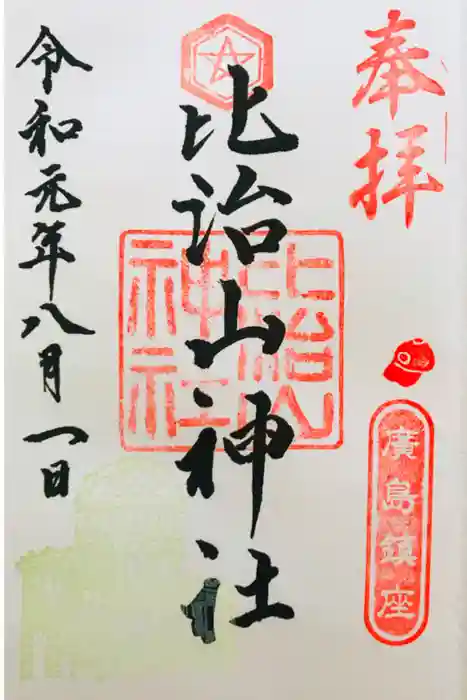 奉拝
廣島鎮座
比治山神社
比治山神社
令和元年八月一日